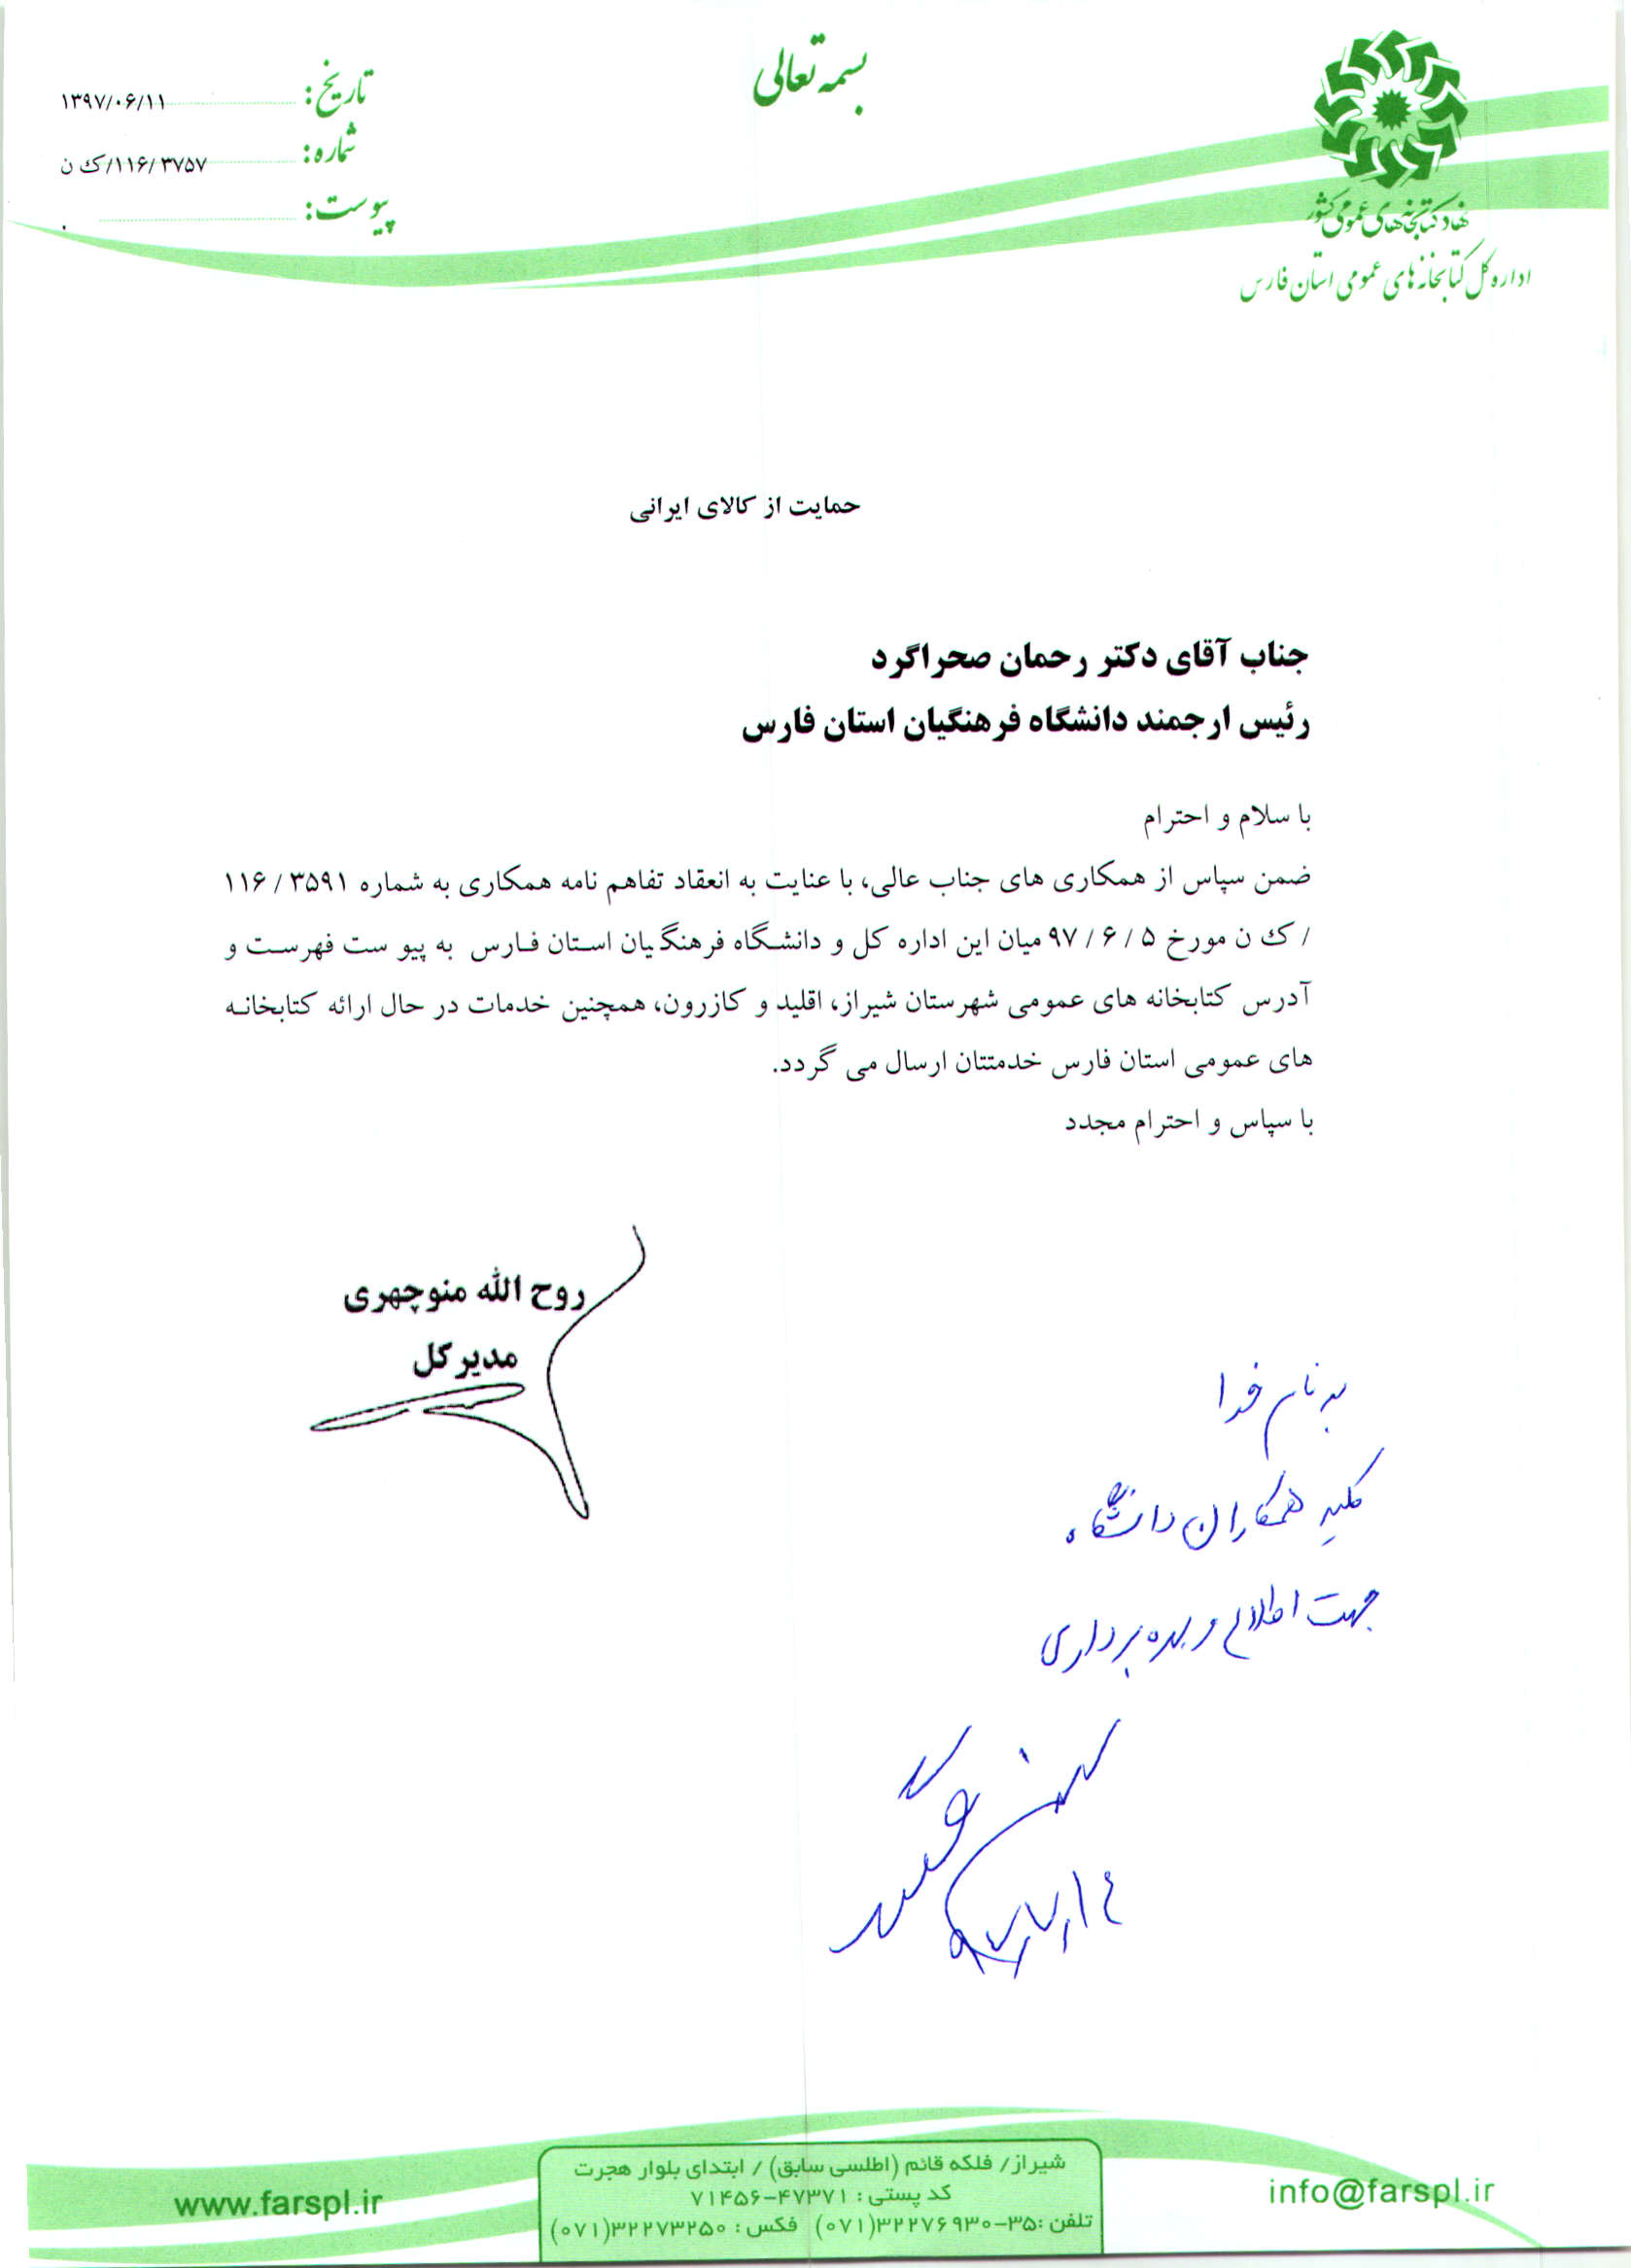 بسمه تعالی
تاریخ: ۱۳۹۷/۰۶/۱۱
شماره: ۱۱۶/۳۷۵۷/ک ن
پیوست: ۰
نهاد کتابخانه‌های عمومی کشور
اداره کل کتابخانه های عمومی استان فارس
حمایت از کالای ایرانی
جناب آقای دکتر رحمان صحراگرد
رئیس ارجمند دانشگاه فرهنگیان استان فارس
با سلام و احترام
ضمن سپاس از همکاری های جناب عالی، با عنایت به انعقاد تفاهم نامه همکاری به شماره ۳۵۹۱ / ۱۱۶
/ ک ن مورخ ۵ / ۶ / ۹۷ میان این اداره کل و دانشگاه فرهنگیان استان فارس به پیو ست فهرست و
آدرس کتابخانه های عمومی شهرستان شیراز، اقلید و کازرون، همچنین خدمات در حال ارائه کتابخانه
های عمومی استان فارس خدمتتان ارسال می گردد.
با سپاس و احترام مجدد
روح الله منوچهری
مدیرکل
به نام خدا
کلیه همکاران دانشگاه
جهت اطلاع و بهره برداری
شیراز/ فلکه قائم (اطلسی سابق) / ابتدای بلوار هجرت
کد پستی: ۴۷۳۷۱-۷۱۴۵۶
تلفن :۳۵-۳۲۲۷۶۹۳۰(۰۷۱) فکس: ۳۲۲۷۳۲۵۰(۰۷۱)
www.farspl.ir
info@farspl.ir